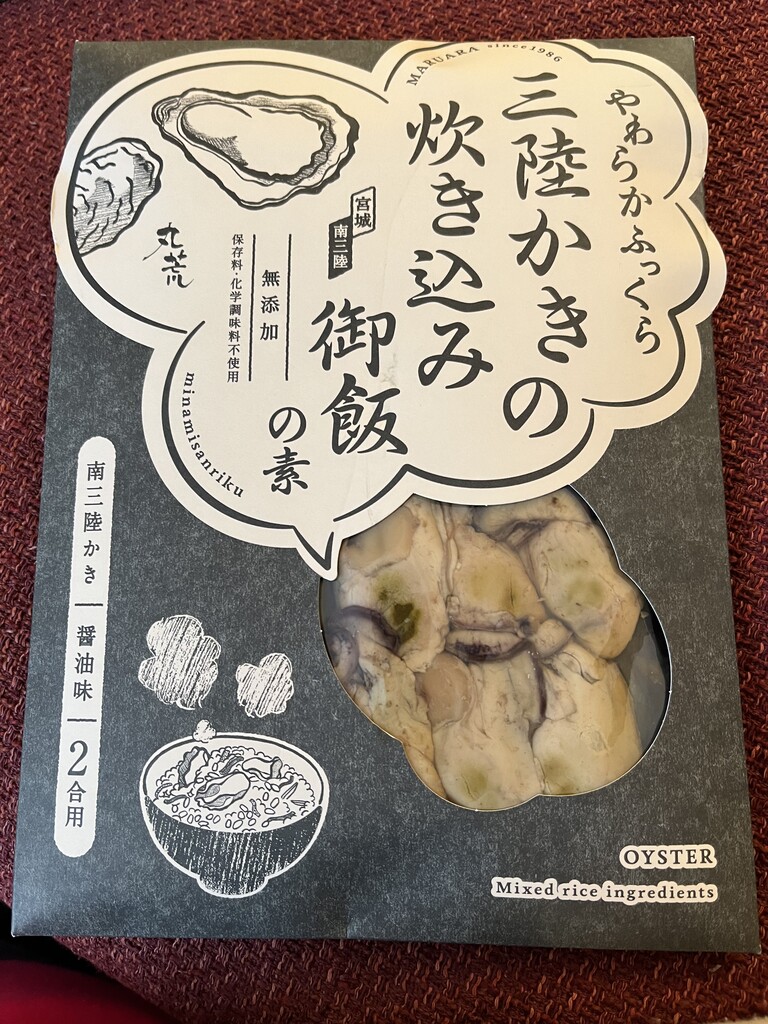 MARUARA since1986
やわらかふっくら
三陸かきの
炊き込み
御飯
の素
宮城
南三陸
無添加
保存料・化学調味料不使用
丸荒
minamisanriku
南三陸かき
醤油味
2合用
OYSTER
Mixed rice ingredients